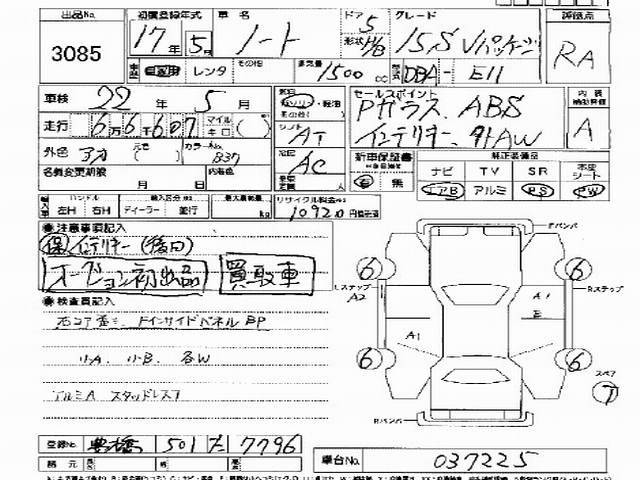 出品No. 3085
初度登録年式 17年 5月
車名 ノート
ドア 5
形状 H/B
グレード 15S Vパッケージ
評価点 RA
車歴 自家用 レンタ その他
排気量 1500 cc
型式 DBA- E11
車検 22年 5月
走行 6万6千607 マイル キロ ( )
外色 アオ 元色 ( ) カラーNo. B37
内装色
名義変更期限 月 日
燃料 ガソリン・軽油 その他( )
シフト AT
冷房 AC
乗車定員 人
セールスポイント
Pガラス. ABS
インテリキー. 外AW
内装補助評価 A
新車保証書 有 無
純正装備品
ナビ TV SR 本皮シート
エアB アルミ PS PW
輸入車 ハンドル 左H 右H
輸入区分 ディーラー 並行
最大積載量 kg
リサイクル料金 10920 円預託済
注意事項記入
(保) インテリキー (後日)
オークション初出品 買取車
検査員記入
右コア歪ミ ドインサイドパネルBP
小A. 小B. 各W
アルミA スタッドレス7
Fバンパ
Lステップ
Rステップ
A2
A1
B
A1
6
6
6
6
スペア
T
Rバンパ
登録No. 豊橋 501 た 7796
車台No. 037225